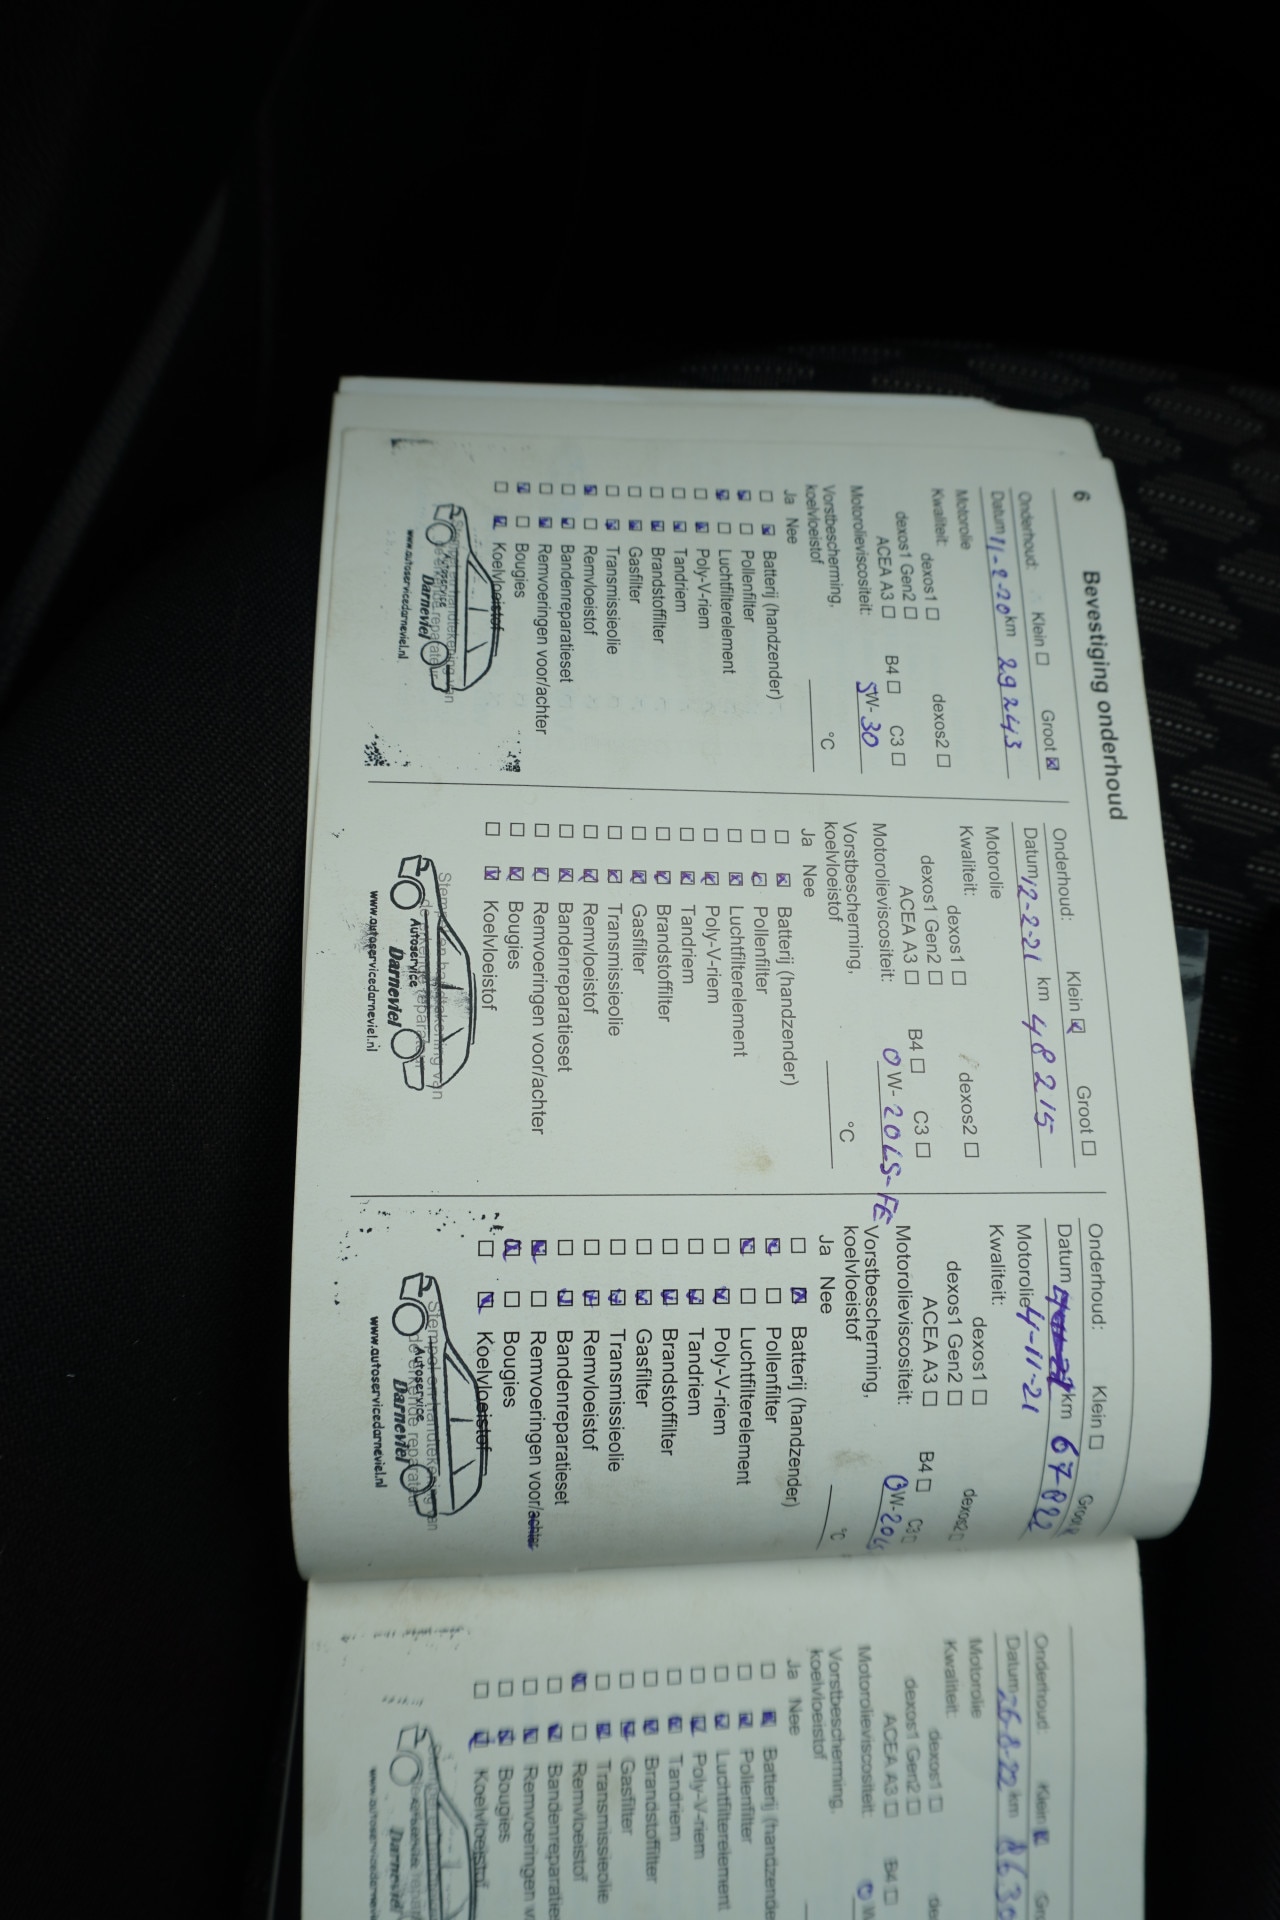 6 Bevestiging onderhoud
Onderhoud: Klein Groot
Datum 11-2-20 km 29243
Motorolie
Kwaliteit: dexos1 dexos2
dexos1 Gen2
ACEA A3 B4 C3
Motorolieviscositeit: 5W-30
Vorstbescherming,
koelvloeistof °C
Ja Nee
Batterij (handzender)
Pollenfilter
Luchtfilterelement
Poly-V-riem
Tandriem
Brandstoffilter
Gasfilter
Transmissieolie
Remvloeistof
Bandenreparatieset
Remvoeringen voor/achter
Bougies
Koelvloeistof
Stempel en handtekening van
de erkende reparateur
Autoservice
Darneviel
www.autoservicedarneviel.nl
Onderhoud: Klein Groot
Datum 12-2-21 km 48215
Motorolie
Kwaliteit: dexos1 dexos2
dexos1 Gen2
ACEA A3 B4 C3
Motorolieviscositeit: 0W-20LS-FE
Vorstbescherming,
koelvloeistof °C
Ja Nee
Batterij (handzender)
Pollenfilter
Luchtfilterelement
Poly-V-riem
Tandriem
Brandstoffilter
Gasfilter
Transmissieolie
Remvloeistof
Bandenreparatieset
Remvoeringen voor/achter
Bougies
Koelvloeistof
Stempel en handtekening van
de erkende reparateur
Autoservice
Darneviel
www.autoservicedarneviel.nl
Onderhoud: Klein Groot
Datum km 67822
Motorolie 4-11-21
Kwaliteit: dexos1 dexos2
dexos1 Gen2
ACEA A3 B4 C3
Motorolieviscositeit: 0W-20
Vorstbescherming,
koelvloeistof °C
Ja Nee
Batterij (handzender)
Pollenfilter
Luchtfilterelement
Poly-V-riem
Tandriem
Brandstoffilter
Gasfilter
Transmissieolie
Remvloeistof
Bandenreparatieset
Remvoeringen voor/achter
Bougies
Koelvloeistof
Stempel en handtekening van
de erkende reparateur
Autoservice
Darneviel
www.autoservicedarneviel.nl
Onderhoud: Klein
Datum 26-8-22 km 8630
Motorolie
Kwaliteit: dexos1
dexos1 Gen2
ACEA A3 B4
Motorolieviscositeit: 0W
Vorstbescherming,
koelvloeistof
Ja Nee
Batterij (handzende
Pollenfilter
Luchtfilterelement
Poly-V-riem
Tandriem
Brandstoffilter
Gasfilter
Transmissieolie
Remvloeistof
Bandenreparatie
Remvoeringen v
Bougies
Koelvloeistof
Darneviel